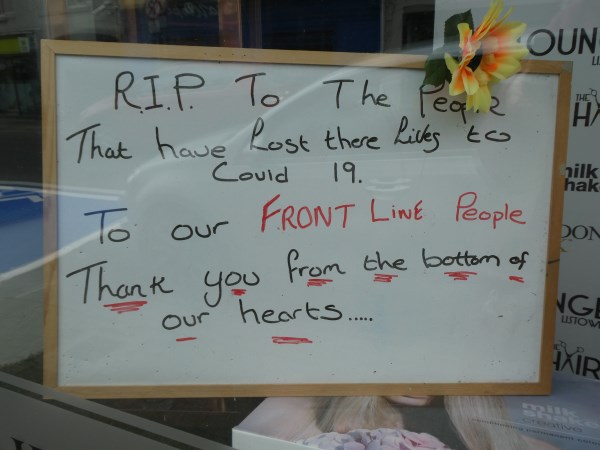 R.I.P. To The People
That have Lost there Lives to
Covid 19.
To our FRONT LINE People
Thank you from the bottom of
our hearts.....
OUN
THE
HA
milk
hak
DON
NGE
LISTOW
HAIR
milk